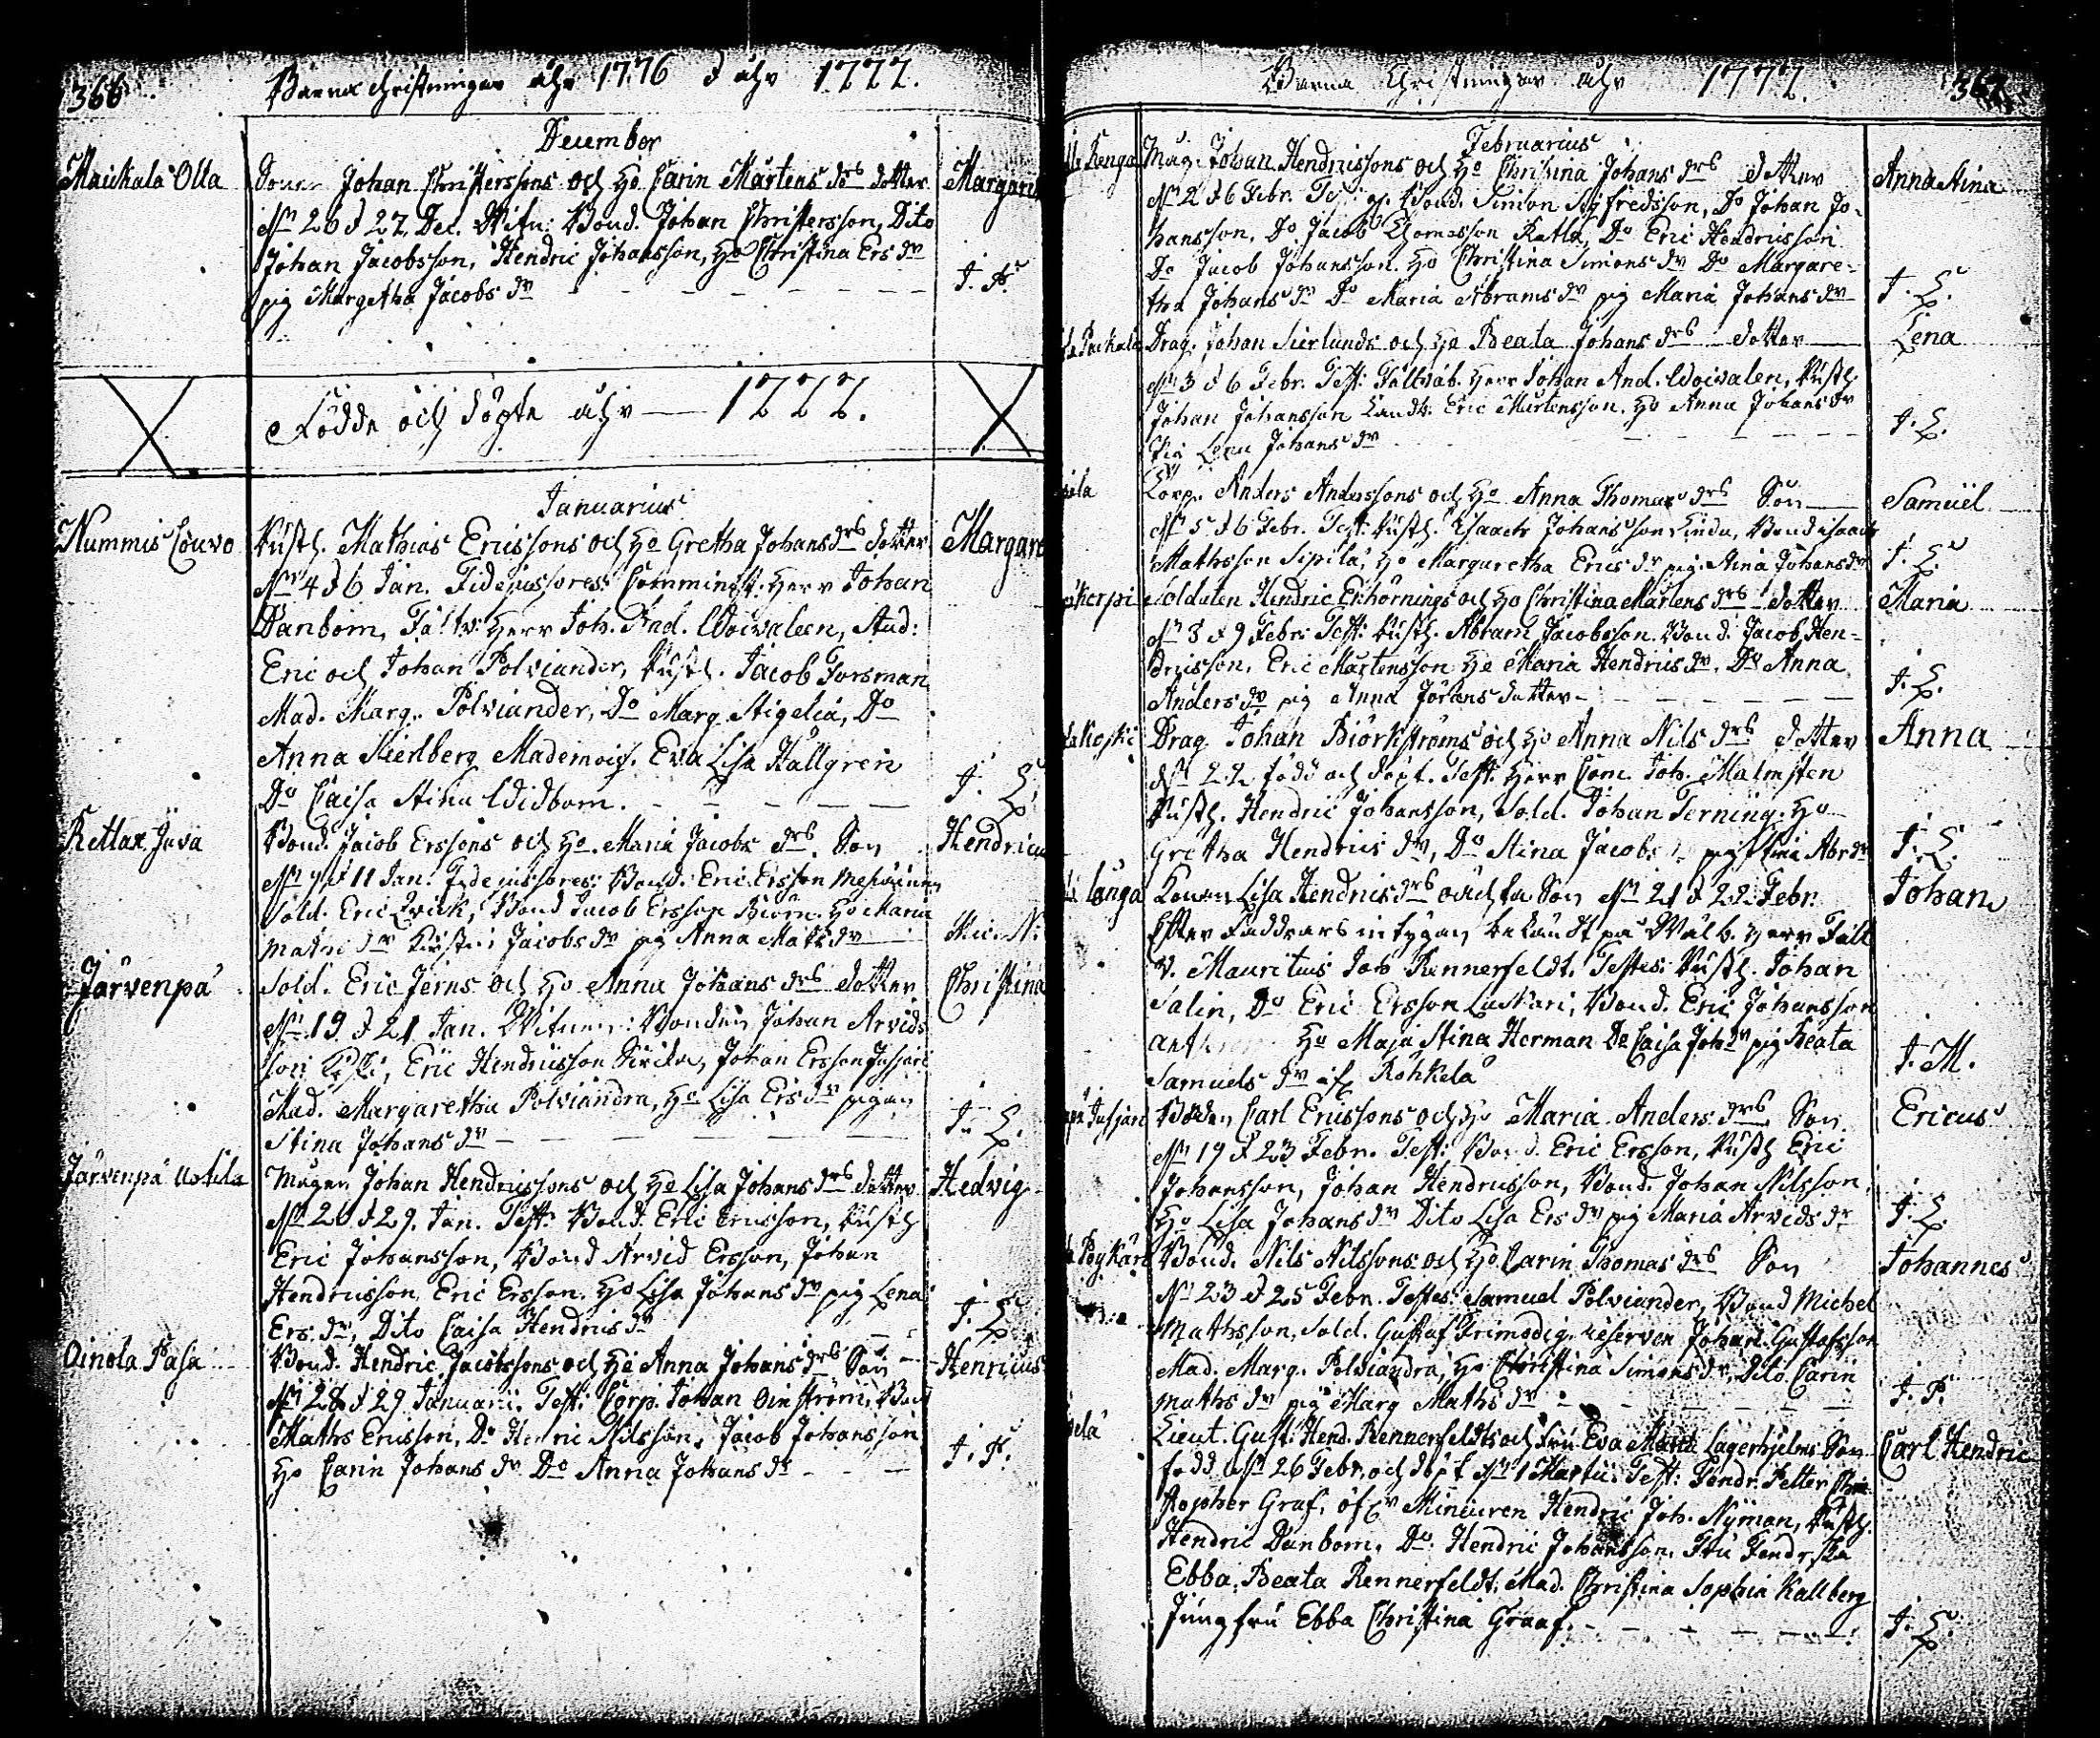 366
Barna Christningar åhr 1776 d åhr 1777.
December
Maickala Olla
Johan Christerssons och Ho Carin Mårtens drs dotter
Margare
Nn 26 d 27 Dec. Vitn: Bond. Johan Christersson, Dito
Johan Jacobsson, Hendric Johansson, Ho Christina Ers dr
pig Margetha Jacobs dr
J. P.
Födde och döpte åhr 1777.
Januarius
Nummis Couvo
Rusth. Mathias Erissons och Ho Gretha Johans drs dotter
Margare
Nn 4 d 6 Jan. Fidejussores: Herr Johan
Danbom, Fältv: Herr Joh. And. Woivaleen, Stud:
Eric och Johan Polviander, Rusth. Jacob Forsman
Mad. Marg. Polviander, Do Marg. Stigelia, Do
Anna Mademois. Eva Lisa Hallgren
Do Caisa Stina Widbom.
J. L.
Ketlax Juva
Bond. Jacob Erssons och Ho. Maria Jacobs drs. Son
Hendricus
Nn 9 d 11 Jan. Fidejussores: Bond. Eric Ersson
Sold. Eric Qvick, Bond Jacob Ersson Biörn. Ho Maria
Maths dr Jacobs dr pig Anna Mats dr
Järvenpä
Sold. Eric Jerns och Ho Anna Johans drs dotter
Christina
Nn 19 d 21 Jan. Vitnen: Bonden Johan Arvids
son Eric Hendricsson Johan Ersson Jussari
Mad. Margaretha Polviandra, Ho Lisa Ers dr pigan
Stina Johans dr
J. L.
Järvenpä Uotila
Mågen Johan Hendricssons och Ho Lisa Johans drs dotter
Hedvig
Nn 26 d 29. Jan. Test: Bond. Eric Ericsson, Rusth
Eric Johansson, Bond Arvid Ersson, Johan
Hendricsson, Eric Ersson. Ho Lisa Johans dr pig Lena
Ers. dr, Dito Caisa Hendrics dr
J. L.
Oinola Pasa
Bond. Hendric Jacobssons och Ho Anna Johans drs Son
Henricus
Nn 28 d 29 Januarii. Test: Corp. Johan Oinström, Bond
Maths Ericsson, Do Henric Nilsson, Jacob Johansson
Ho Carin Johans dr Do Anna Johans dr
J. P.
367
Barna Christningar åhr 1777.
Februarius
Renga
Måg. Johan Hendricssons och Ho Christina Johans drs dotter
Anna Stina
Nn 2 d 6 Febr. Bond. Simon Sigfredsson, Do Johan Jo-
hansson, Do Jacob Thomasson Do Eric Hendricsson
Do Jacob Johansson. Ho Christina Simons dr Do Margare-
tha Johans dr Do Maria Abrams dr pig Maria Johans dr
J. L.
Packala
Drag. Johan Sierlunds och Ho Beata Johans drs dotter
Lena
Nn 3 d 6 Febr. Test: Fältväb. Herr Johan And. Woivalen, Rusth
Johan Johansson Eric Mårtensson, Ho Anna Johans dr
Pig Lena Johans dr
J. L.
Corp. Anders Anderssons och Ho Anna Thomas drs Son
Samuel
Nn 5 d 6 Febr. Test: Rusth. Isaach Johansson Bond Isaach
Mathsson Sipilä, Ho Margaretha Erics dr pig. Stina Johans dr
J. L.
kerpi
Soldaten Hendric Enhörnings och Ho Christina Mårtens drs dotter
Maria
Nn 8 d 9 Febr. Test: Rusth. Abram Jacobsson. Bond. Jacob Hen-
dricsson, Eric Mårtensson Ho Maria Hendrics dr. Do Anna
Anders dr pig Anna Jörans dotter
J. L.
koski
Drag. Johan Biörkströms och Ho Anna Nils drs dotter
Anna
Nn 22 född och döpt. Test: Herr Com. Joh. Malmsten
Rusth. Hendric Johansson, Sold. Johan Terning. Ho
Gretha Hendrics dr, Do Stina Jacobs dr pig Stina Abr dr
J. L.
Langa
Konan Lisa Hendrics drs oächta Son Nn 21 d 22 Febr.
Johan
Efter Faddrars intygan Herr Fält
v. Mauritius Joh Rennerfeldt. Testes: Rusth. Johan
Salin, Do Eric Ersson Bond. Eric Johansson
Ho Maja Stina Herman Do Caisa Joh dr pig Beata
Samuels dr if. Röhkelä
J. M.
Jussari
Bonden Carl Ericssons och Ho Maria Anders drs Son
Ericus
Nn 19 d 23 Febr. Test: Bond. Eric Ersson, Rusth Eric
Johansson, Johan Hendricsson, Bond. Johan Nilsson,
Ho Lisa Johans dr Dito Lisa Ers dr pig Maria Arvids dr
J. L.
Bond. Nils Nilssons och Ho Carin Thomas drs Son
Johannes
Nn 23 d 25 Febr. Testes: Samuel Polviander, Bond Michel
Mathsson, Sold. Gustaf Frimodig, reserven Johan Gustafsson
Mad. Marg. Polviandra, Ho Christina Simons dr, Dito Carin
Maths dr pig Marg Maths dr
J. P.
Lieut. Gust: Hend. Rennerfeldts och Fru Eva Maria Lagerhjelms Son
Carl Hendric
född Nn 26 Febr. och döpt Nn 1 Martii. Test: Fendr. Petter Chri-
stopher Graf, öfr Mineuren Hendric Joh. Nyman, Rusth.
Hendric Danbom, Do. Hendric Johansson, Fru Fendrska
Ebba Beata Rennerfeldt, Mad. Christina Sophia Kallberg
Jungfru Ebba Christina Graaf.
J. L.